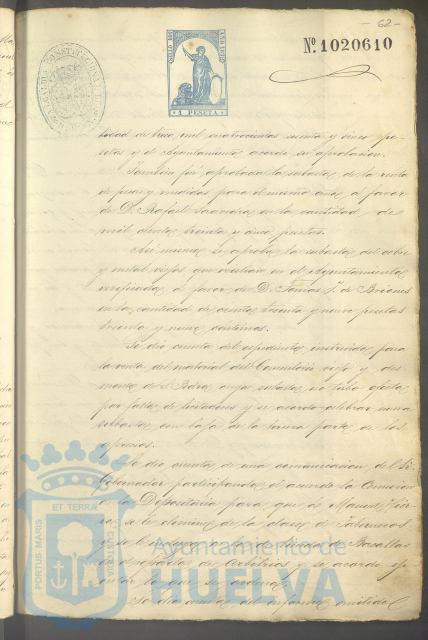 - 62 -
Nº 1020610
ALCALDIA CONSTITUCIONAL
SELLO 10º AÑO 1872
1 PESETA
tidad de tres mil cuatrocientas y cinco pe-
setas y el Ayuntamiento acordó su aprobacion.
Tambien fué aprobada la subasta de la renta
de pesas y medidas para el mismo año a favor
de D. Rafael Saavedra en la cantidad de
mil cientas treinta y cinco pesetas.
Asi mismo se aprobó la subasta del cobre
y metal viejo que existian en el Ayuntamiento
verificada a favor de D. Tomas J. de Briones
en la cantidad de ciento treinta y nueve pesetas
treinta y nueve centimos.
Se dió cuenta del espediente instruido para
la venta del material del Cementerio viejo y des
monte de S. Pedro cuya subasta no tubo efecto
por falta de licitadores y se acordó celebrar nueva
subasta con baja de la tercera parte de los
aprecios.
Se dió cuenta de una comunicacion del Sr.
Gobernador participando el acuerdo la Comision
de la Depositaría para que de Manuel
se le de la plaza de
se le
de Arbitrios y se acordó
lo que se ordena.
Se dió cuenta del informe emitido
PORTUS MARIS ET TERRAE CUSTODIA
Ayuntamiento de
HUELVA